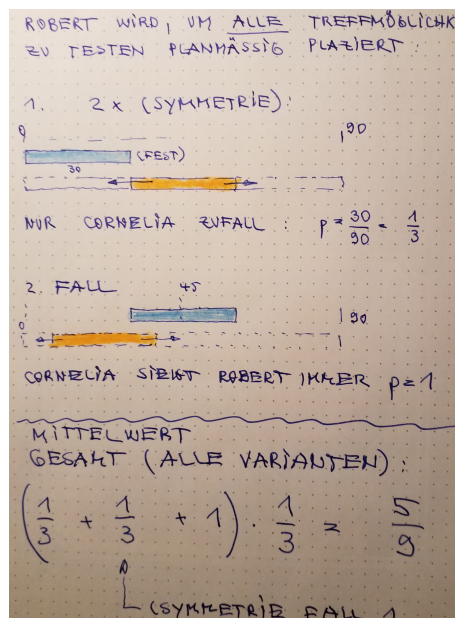 ROBERT WIRD, UM ALLE TREFFMÖGLICHK
ZU TESTEN PLANMÄSSIG PLAZIERT:
1. 2x (SYMMETRIE):
0 90
(FEST)
30
NUR CORNELIA ZUFALL : p = 30/90 = 1/3
2. FALL 45
0 90
CORNELIA SIEHT ROBERT IMMER p=1
MITTELWERT
GESAMT (ALLE VARIANTEN):
(1/3 + 1/3 + 1) · 1/3 = 5/9
(SYMMETRIE FALL 1